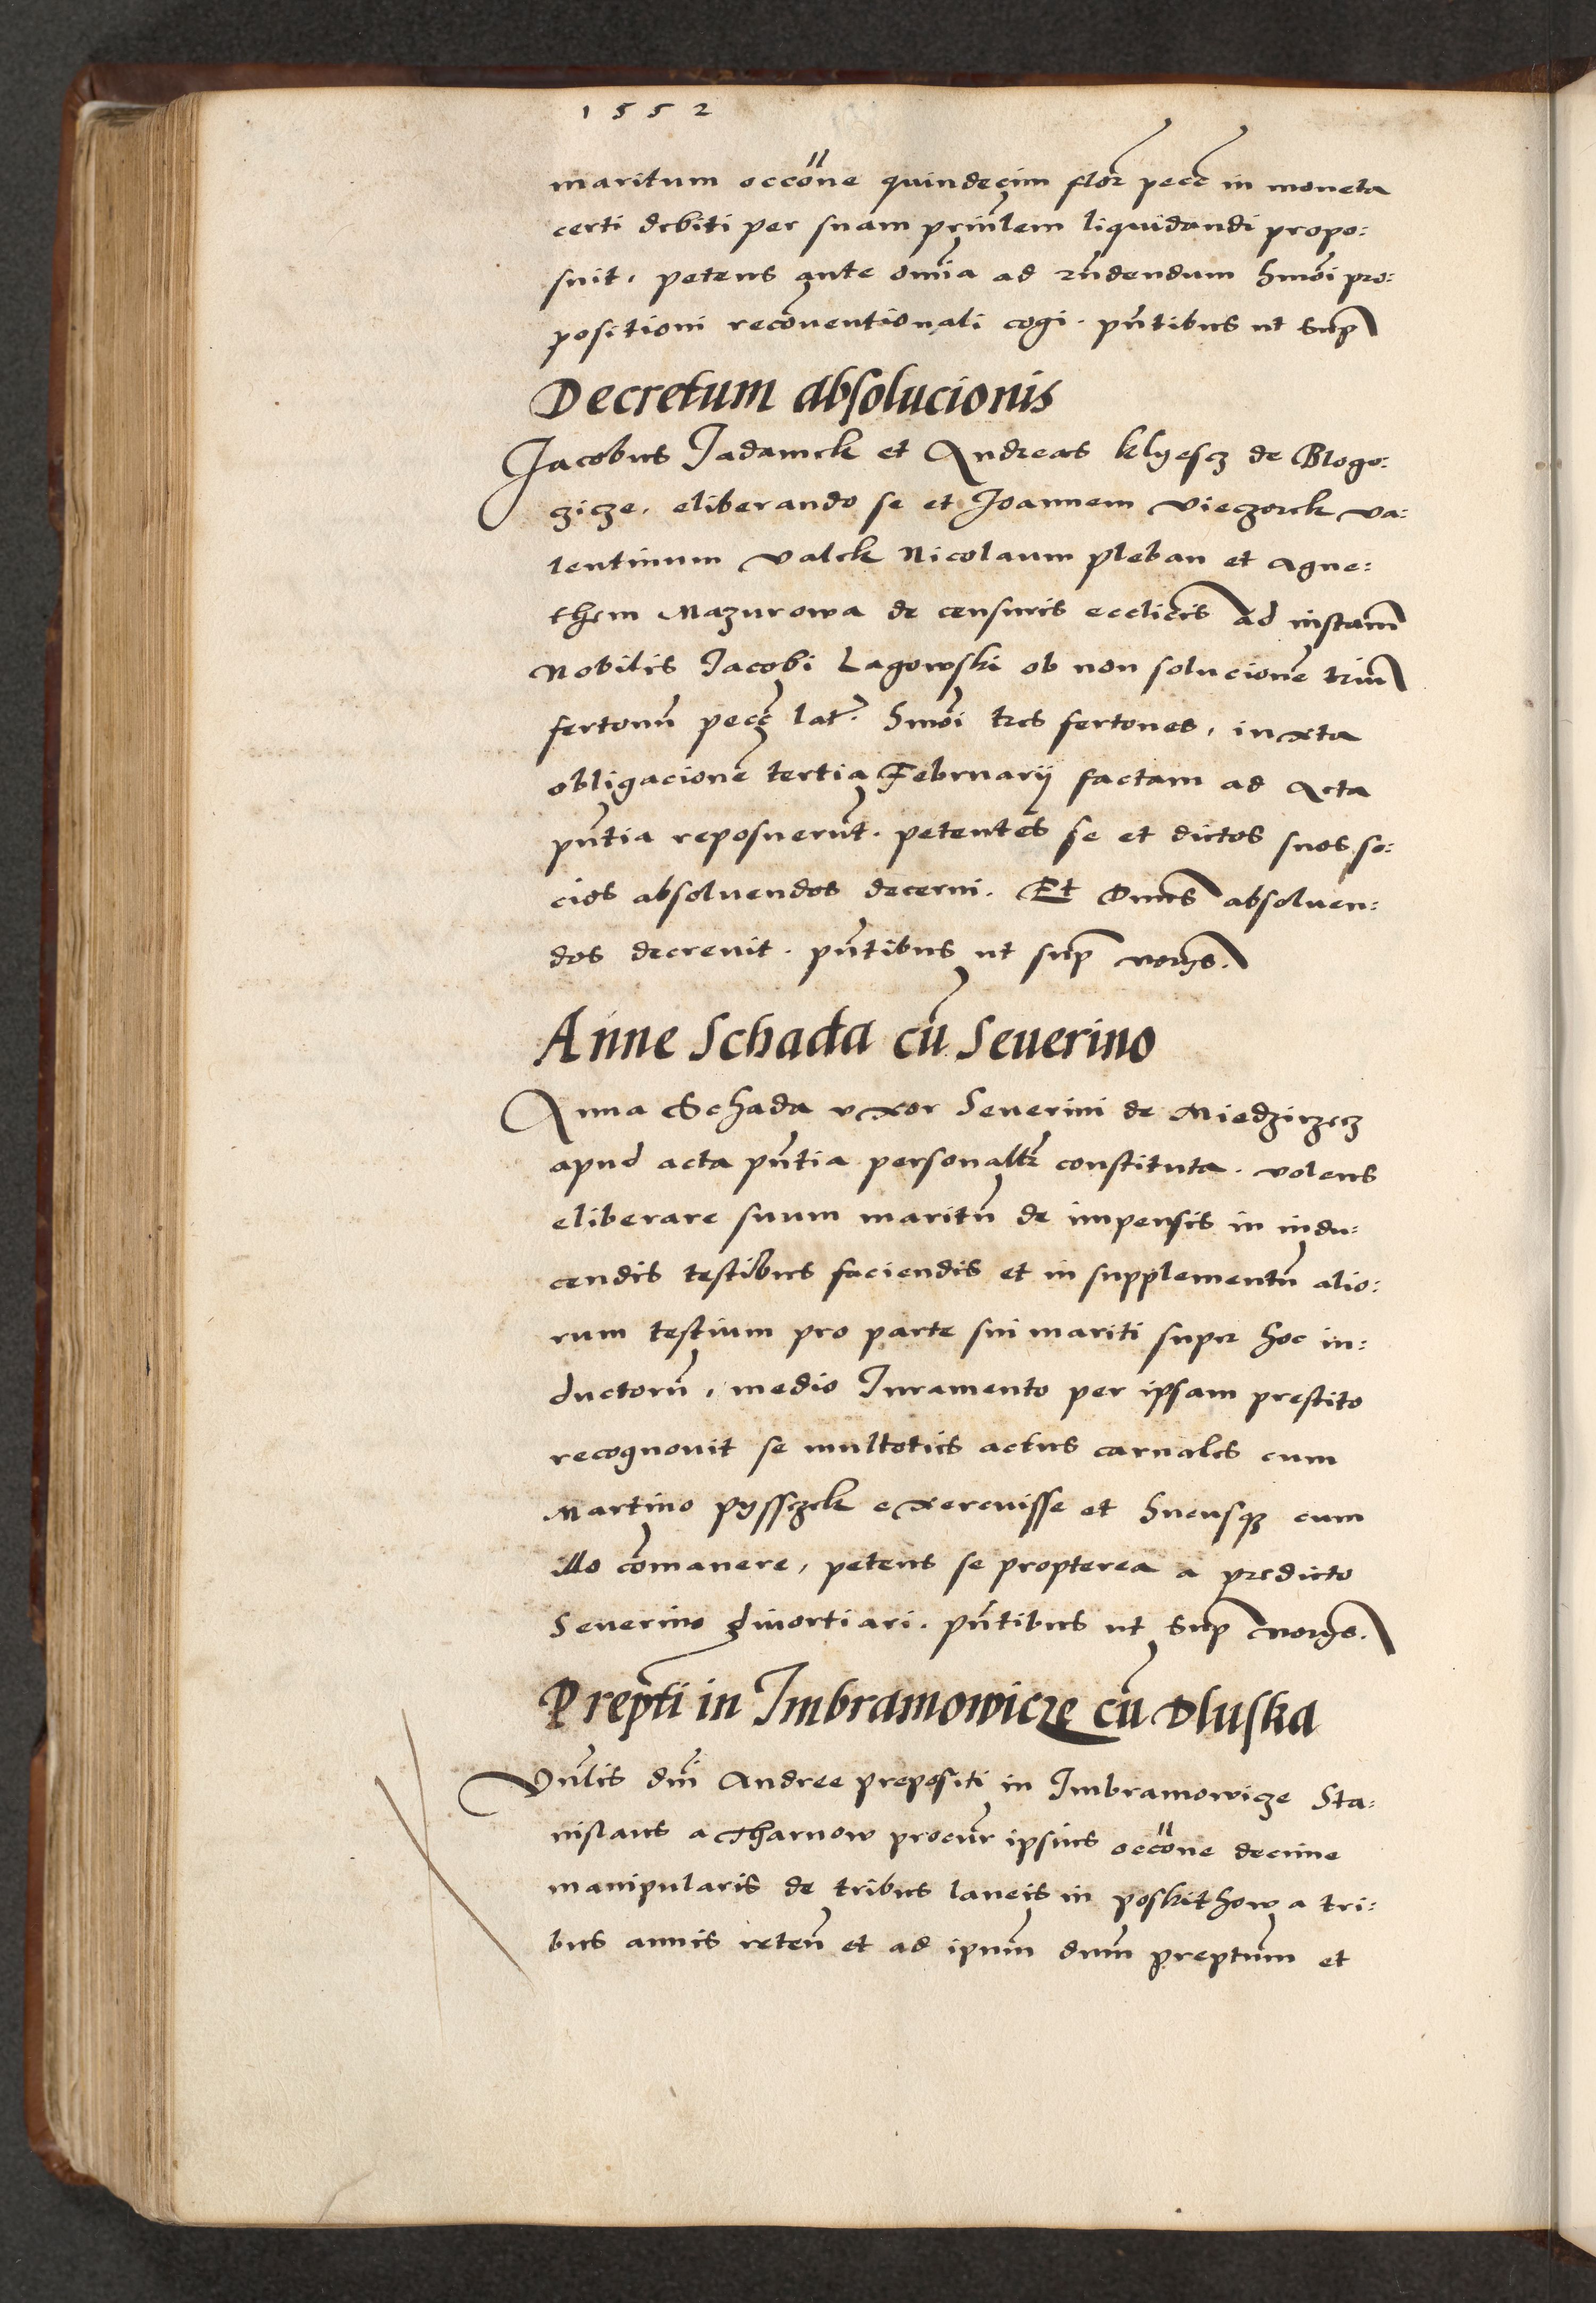 1552
maritum occõne quindecim flor̃ pecc̃ in moneta
certi debiti per suam prin̄lem liquidandi propo:
suit. petens ante om̄ia ad rñdendum hmõi pro:
positioni recõventionali cogi. pñtibus ut sup
Decretum absolucionis
Jacobus Jadamek et Andreas klyescz de Blogo:
czicze. eliberando se et Joannem vieczorek va:
lentinum valek Nicolaum pleban et Agne:
them Mazurowa de censuris eccl̃icis ad instam̃
Nobilis Jacobi Lagowski ob non solucionẽ triũ
fertonũ pecc̃ lat̃. hmõi tres fertones, iuxta
obligacionẽ tertia Februarij factam ad Acta
pñtia reposuerũt. petentes se et dictos suos so:
cios absoluendos decerni. Et Dnus absoluen:
dos decreuit. pñtibus ut sup
Anne Schada cũ Seuerino
Anna Schada vxor Seuerini de Miedzirzecz
apud acta pñtia personaltr̃ constituta. volens
eliberare suum maritũ de impensis in indu:
cendis testibus faciendis et in supplementũ alio:
rum testium pro parte sui mariti super hoc in:
ductorũ, medio Juramento per ipsam prestito
recognouit se multoties actus carnales cum
Martino pyssczek exercuisse et hucusqz cum
illo cõmanere, petens se propterea a predicto
Seuerino diuortiari. pñtibus ut sup
Prepti in Imbramowicze cũ Dluska
Vñlis dñi Andree prepositi in Imbramowicze Sta:
nislaus a Tharnow procur̃ ipsius occõne decime
manipularis de tribus laneis in poskithow a tri:
bus annis reteñ et ad ipum̃ dnum̃ preptum̃ et